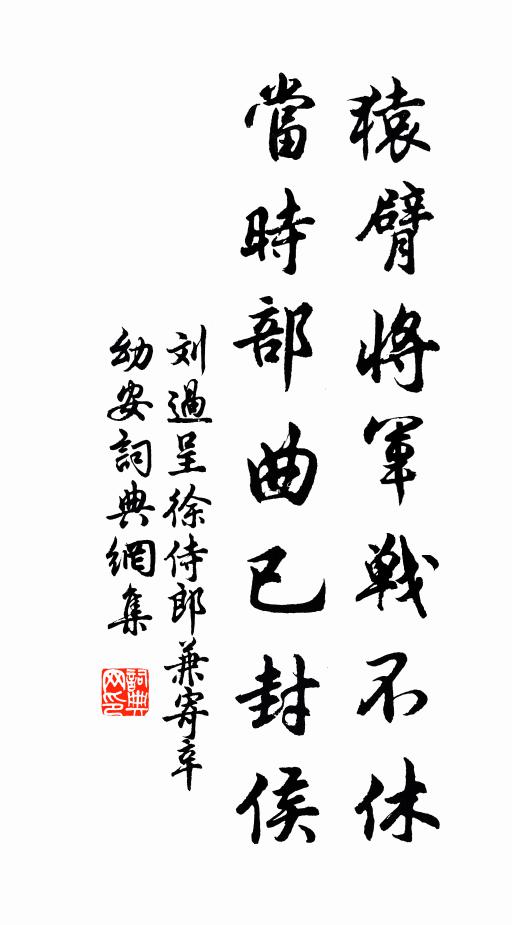 猿臂將軍戰不休
當時部曲已封侯
刘過呈徐侍郎兼寄辛
幼安詞典網集
詞典网印